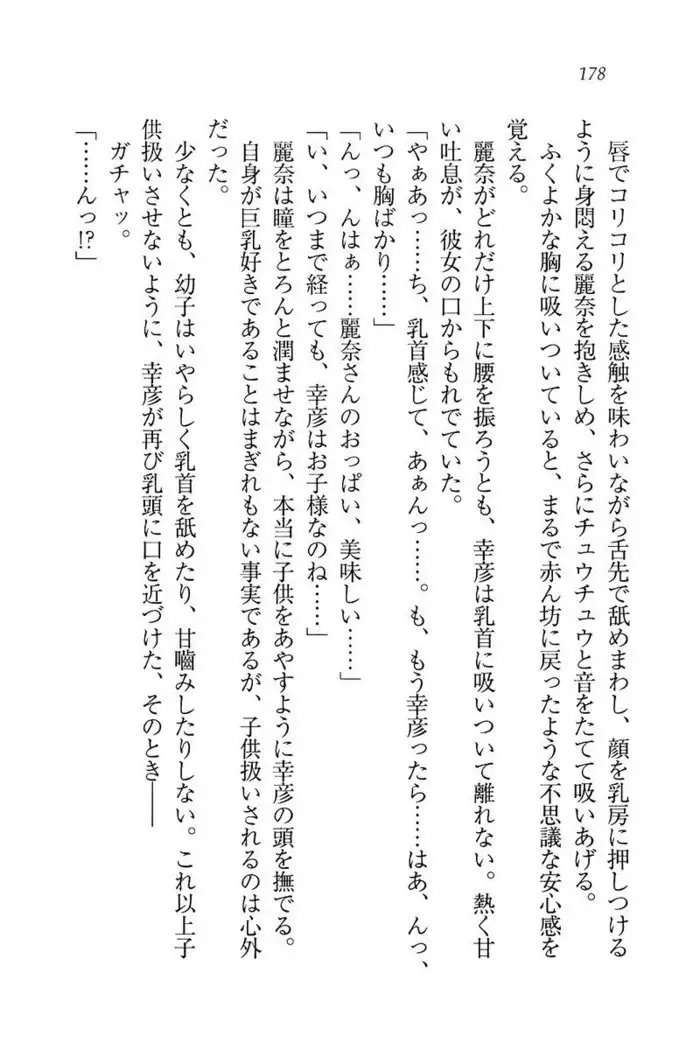 178
唇でコリコリとした感触を味わいながら舌先で舐めまわし、顔を乳房に押しつける
ように身悶える麗奈を抱きしめ、さらにチュウチュウと音をたてて吸いあげる。
ふくよかな胸に吸いついていると、まるで赤ん坊に戻ったような不思議な安心感を
覚える。
麗奈がどれだけ上下に腰を振ろうとも、幸彦は乳首に吸いついて離れない。熱く甘
い吐息が、彼女の口からもれでていた。
「やぁあっ……ち、乳首感じて、あぁんっ……。も、もう幸彦ったら……はあ、んっ、
いつも胸ばかり……」
「んっ、んはぁ……麗奈さんのおっぱい、美味しい……」
「い、いつまで経っても、幸彦はお子様なのね……」
麗奈は瞳をとろんと潤ませながら、本当に子供をあやすように幸彦の頭を撫でる。
自身が巨乳好きであることはまぎれもない事実であるが、子供扱いされるのは心外
だった。
少なくとも、幼子はいやらしく乳首を舐めたり、甘嚙みしたりしない。これ以上子
供扱いさせないように、幸彦が再び乳頭に口を近づけた、そのとき――
ガチャッ。
「……んっ!?」